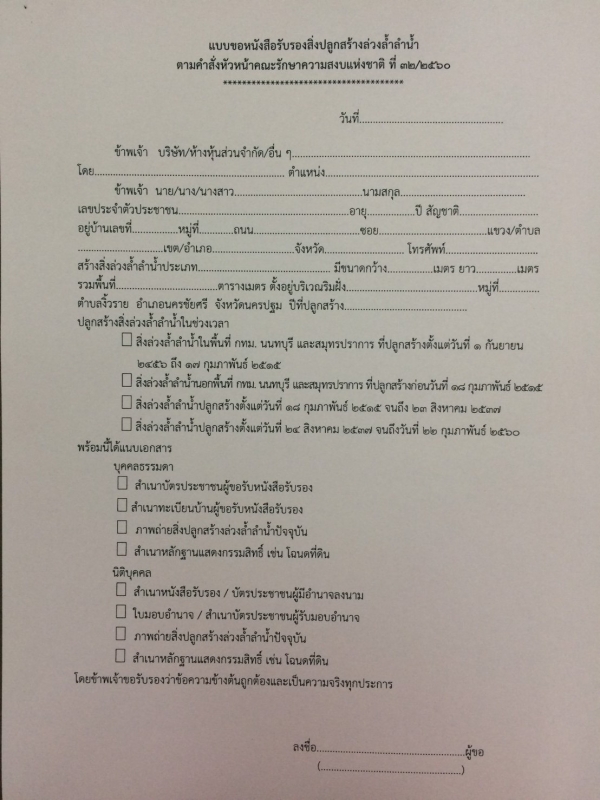 แบบขอหนังสือรับรองสิ่งปลูกสร้างล่วงล้ำลำน้ำ
ตามคำสั่งหัวหน้าคณะรักษาความสงบแห่งชาติ ที่ ๓๒/๒๕๖๐
***************************************
วันที่................................................
ข้าพเจ้า บริษัท/ห้างหุ้นส่วนจำกัด/อื่น ๆ................................................................................
โดย................................................................ ตำแหน่ง........................................................................
ข้าพเจ้า นาย/นาง/นางสาว...........................................นามสกุล..........................................
เลขประจำตัวประชาชน.........................................................อายุ................ปี สัญชาติ..........................
อยู่บ้านเลขที่...............หมู่ที่...........ถนน...................................ซอย....................................แขวง/ตำบล
............................เขต/อำเภอ...........................จังหวัด........................... โทรศัพท์...............................
สร้างสิ่งล่วงล้ำลำน้ำประเภท............................................ มีขนาดกว้าง...............เมตร ยาว..............เมตร
รวมพื้นที่.........................ตารางเมตร ตั้งอยู่บริเวณริมฝั่ง............................................หมู่ที่............
ตำบลงิ้วราย อำเภอนครชัยศรี จังหวัดนครปฐม ปีที่ปลูกสร้าง.........................................
ปลูกสร้างสิ่งล่วงล้ำลำน้ำในช่วงเวลา
☐ สิ่งล่วงล้ำลำน้ำในพื้นที่ กทม. นนทบุรี และสมุทรปราการ ที่ปลูกสร้างตั้งแต่วันที่ ๑ กันยายน
๒๔๕๖ ถึง ๑๗ กุมภาพันธ์ ๒๕๑๕
☐ สิ่งล่วงล้ำลำน้ำนอกพื้นที่ กทม. นนทบุรี และสมุทรปราการ ที่ปลูกสร้างก่อนวันที่ ๑๘ กุมภาพันธ์ ๒๕๑๕
☐ สิ่งล่วงล้ำลำน้ำปลูกสร้างตั้งแต่วันที่ ๑๘ กุมภาพันธ์ ๒๕๑๕ จนถึง ๒๓ สิงหาคม ๒๕๓๗
☐ สิ่งล่วงล้ำลำน้ำปลูกสร้างตั้งแต่วันที่ ๒๔ สิงหาคม ๒๕๓๗ จนถึงวันที่ ๒๒ กุมภาพันธ์ ๒๕๖๐
พร้อมนี้ได้แนบเอกสาร
บุคคลธรรมดา
☐ สำเนาบัตรประชาชนผู้ขอรับหนังสือรับรอง
☐ สำเนาทะเบียนบ้านผู้ขอรับหนังสือรับรอง
☐ ภาพถ่ายสิ่งปลูกสร้างล่วงล้ำลำน้ำปัจจุบัน
☐ สำเนาหลักฐานแสดงกรรมสิทธิ์ เช่น โฉนดที่ดิน
นิติบุคคล
☐ สำเนาหนังสือรับรอง / บัตรประชาชนผู้มีอำนาจลงนาม
☐ ใบมอบอำนาจ / สำเนาบัตรประชาชนผู้รับมอบอำนาจ
☐ ภาพถ่ายสิ่งปลูกสร้างล่วงล้ำลำน้ำปัจจุบัน
☐ สำเนาหลักฐานแสดงกรรมสิทธิ์ เช่น โฉนดที่ดิน
โดยข้าพเจ้าขอรับรองว่าข้อความข้างต้นถูกต้องและเป็นความจริงทุกประการ
ลงชื่อ..................................................ผู้ขอ
(................................................)